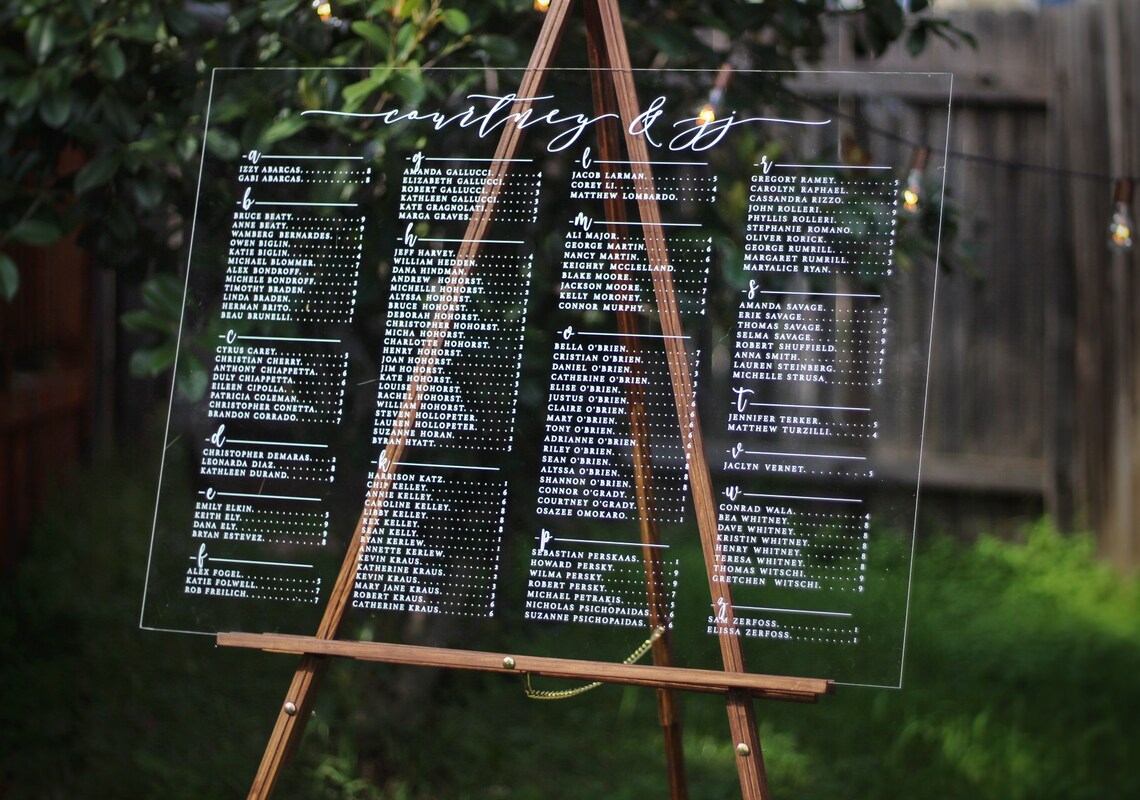 courtney & jj
a
IZZY ABARCAS
GABI ABARCAS
b
BRUCE BEATY
ANNE BEATY
WAMBERG BERNARDES
OWEN BIGLIN
KATIE BIGLIN
MICHAEL BOMMER
ALEX BONDROFF
KATIE BONDROFF
TIMOTHY BRADEN
LINDA BRADEN
HERMAN BRITO
BEAU BRUNELLI
c
CYRUS CAREY
CHRISTIAN CHERRY
ANTHONY CHIAPPETTA
DULY CHIAPPETTA
EILEEN CIPOLLA
PATRICIA COLEMAN
CHRISTOPHER CONETTA
BRANDON CORRADO
d
CHRISTOPHER DEMARAS
LEONARDA DIAZ
KATHLEEN DURAND
e
EMILY ELKIN
KEITH ELY
DANA ELY
BRYAN ESTEVEZ
f
ALEX FOGEL
KATIE FOLWELL
ROB FREILICH
g
AMANDA GALLUCCI
ELIZABETH GALLUCCI
ROBERT GALLUCCI
KATHLEEN GALLUCCI
KATE GRAGNOLATI
MARGA GRAVES
h
JEFF HARVEY
WILLIAM HEDDEN
DANA HINDMAN
ANDREW HOHORST
MICHELLE HOHORST
ALYSSA HOHORST
BRUCE HOHORST
DEBORAH HOHORST
CHRISTOPHER HOHORST
MICHA HOHORST
CHARLOTTE HOHORST
HENRY HOHORST
JOAN HOHORST
JIM HOHORST
KATE HOHORST
LOUISE HOHORST
RACHEL HOHORST
WILLIAM HOHORST
STEVEN HOLLOPETER
LAUREN HOLLOPETER
SUZANNE HORAN
BYRAN HYATT
k
HARRISON KATZ
CHIP KELLEY
ANNIE KELLEY
CAROLINE KELLEY
LIBBY KELLEY
REX KELLEY
SEAN KELLY
RYAN KERLEW
ANNETTE KERLEW
KEVIN KRAUS
KATHERINE KRAUS
KEVIN KRAUS
MARY JANE KRAUS
ROBERT KRAUS
CATHERINE KRAUS
l
JACOB LARMAN
COREY LI
MATTHEW LOMBARDO
m
ALI MAJOR
GEORGE MARTIN
NANCY MARTIN
KEIGHRY MCCLELLAND
BLAKE MOORE
JACKSON MOORE
KELLY MORONEY
CONNOR MURPHY
o
BELLA O'BRIEN
CRISTIAN O'BRIEN
DANIEL O'BRIEN
CATHERINE O'BRIEN
ELISE O'BRIEN
JUSTUS O'BRIEN
CLAIRE O'BRIEN
MARY O'BRIEN
TONY O'BRIEN
ADRIANNE O'BRIEN
RILEY O'BRIEN
SEAN O'BRIEN
ALYSSA O'BRIEN
SHANNON O'BRIEN
CONNOR O'GRADY
COURTNEY O'GRADY
OSAZEE OMOKARO
p
SEBASTIAN PERSKAAS
HOWARD PERSKY
WILMA PERSKY
ROBERT PERSKY
MICHAEL PETRAKIS
NICHOLAS PSICHOPAIDAS
SUZANNE PSICHOPAIDAS
r
GREGORY RAMEY
CAROLYN RAPHAEL
CASSANDRA RIZZO
JOHN ROLLERI
PHYLLIS ROLLERI
STEPHANIE ROMANO
OLIVER RORICK
GEORGE RUMRILL
MARGARET RUMRILL
MARYALICE RYAN
s
AMANDA SAVAGE
ERIK SAVAGE
THOMAS SAVAGE
SELMA SAVAGE
ROBERT SHUFFIELD
ANNA SMITH
LAUREN STEINBERG
MICHELLE STRUSA
t
JENNIFER TERKER
MATTHEW TURZILLI
v
JACLYN VERNET
w
CONRAD WALA
BEA WHITNEY
DAVE WHITNEY
KRISTIN WHITNEY
HENRY WHITNEY
TERESA WHITNEY
THOMAS WITSCHI
GRETCHEN WITSCHI
z
SAM ZERFOSS
ELISSA ZERFOSS